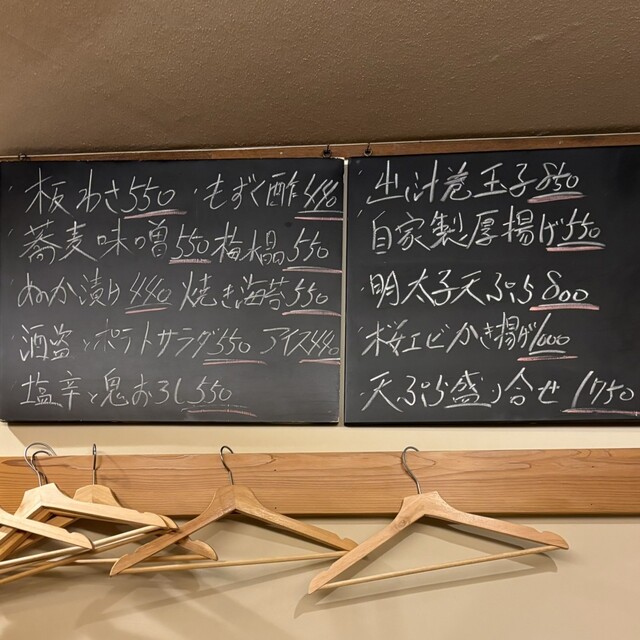 ・板わさ550 ・もずく酢440
・蕎麦味噌550 梅水晶550
・ぬか漬け440 焼き海苔550
・酒盗とポテトサラダ550 アイス440
・塩辛と鬼おろし550
・出汁巻玉子850
・自家製厚揚げ550
・明太子天ぷら800
・桜エビかき揚げ1000
・天ぷら盛り合せ1750